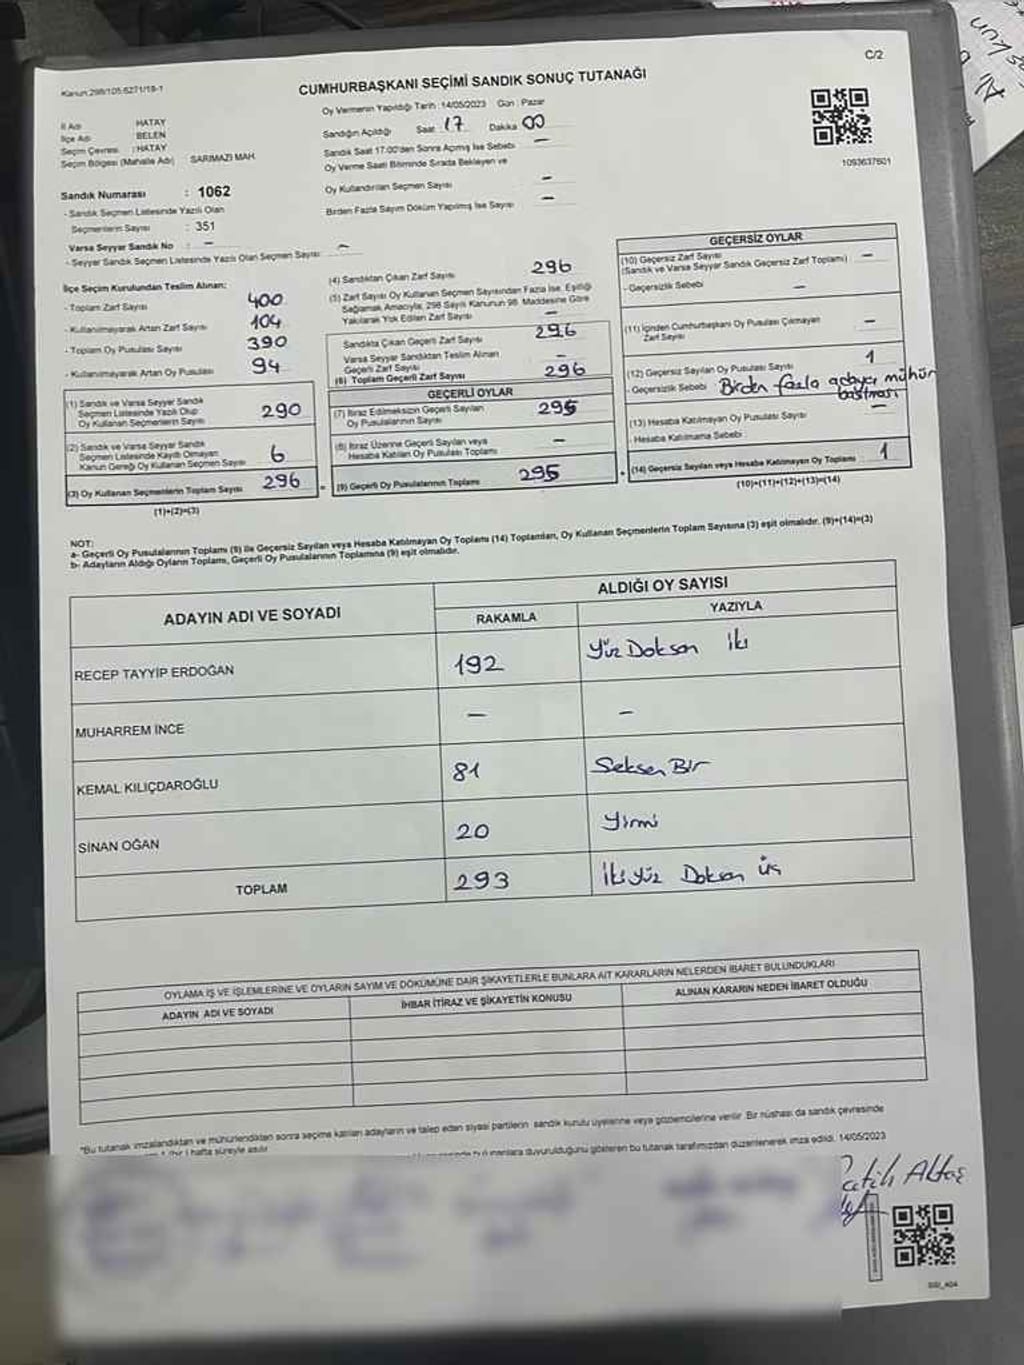 C/2
Kanun:298/105:6271/19-1
CUMHURBAŞKANI SEÇİMİ SANDIK SONUÇ TUTANAĞI
İl Adı HATAY
İlçe Adı BELEN
Seçim Çevresi : HATAY
Seçim Bölgesi (Mahalle Adı) SARIMAZI MAH.
Oy Vermenin Yapıldığı Tarih : 14/05/2023 Gün : Pazar
Sandığın Açıldığı Saat 17 Dakika 00
Sandık Saat 17.00'den Sonra Açılmış İse Sebebi —
Oy Verme Saati Bitiminde Sırada Bekleyen ve
Oy Kullandırılan Seçmen Sayısı —
Birden Fazla Sayım Döküm Yapılmış İse Sayısı —
1093637601
Sandık Numarası : 1062
- Sandık Seçmen Listesinde Yazılı Olan
Seçmenlerin Sayısı : 351
Varsa Seyyar Sandık No : —
- Seyyar Sandık Seçmen Listesinde Yazılı Olan Seçmen Sayısı —
İlçe Seçim Kurulundan Teslim Alınan:
- Toplam Zarf Sayısı 400
- Kullanılmayarak Artan Zarf Sayısı 104
- Toplam Oy Pusulası Sayısı 390
- Kullanılmayarak Artan Oy Pusulası 94
(1) Sandık ve Varsa Seyyar Sandık
Seçmen Listesinde Yazılı Olup
Oy Kullanan Seçmenlerin Sayısı 290
(2) Sandık ve Varsa Seyyar Sandık
Seçmen Listesinde Kayıtlı Olmayan
Kanun Gereği Oy Kullanan Seçmen Sayısı 6
(3) Oy Kullanan Seçmenlerin Toplam Sayısı 296
(1)+(2)=(3)
(4) Sandıktan Çıkan Zarf Sayısı 296
(5) Zarf Sayısı Oy Kullanan Seçmen Sayısından Fazla İse, Eşitliği
Sağlamak Amacıyla; 298 Sayılı Kanunun 98. Maddesine Göre
Yakılarak Yok Edilen Zarf Sayısı —
Sandıkta Çıkan Geçerli Zarf Sayısı 296
Varsa Seyyar Sandıktan Teslim Alınan
Geçerli Zarf Sayısı —
(6) Toplam Geçerli Zarf Sayısı 296
GEÇERLİ OYLAR
(7) İtiraz Edilmeksizin Geçerli Sayılan
Oy Pusulalarının Sayısı 295
(8) İtiraz Üzerine Geçerli Sayılan veya
Hesaba Katılan Oy Pusulası Toplamı —
= (9) Geçerli Oy Pusulalarının Toplamı 295 +
GEÇERSİZ OYLAR
(10) Geçersiz Zarf Sayısı —
(Sandık ve Varsa Seyyar Sandık Geçersiz Zarf Toplamı)
- Geçersizlik Sebebi —
(11) İçinden Cumhurbaşkanı Oy Pusulası Çıkmayan
Zarf Sayısı —
(12) Geçersiz Sayılan Oy Pusulası Sayısı 1
- Geçersizlik Sebebi Birden fazla adaya mühür
basılması
(13) Hesaba Katılmayan Oy Pusulası Sayısı —
- Hesaba Katılmama Sebebi
(14) Geçersiz Sayılan veya Hesaba Katılmayan Oy Toplamı 1
(10)+(11)+(12)+(13)=(14)
NOT:
a- Geçerli Oy Pusulalarının Toplamı (9) ile Geçersiz Sayılan veya Hesaba Katılmayan Oy Toplamı (14) Toplamları, Oy Kullanan Seçmenlerin Toplam Sayısına (3) eşit olmalıdır. (9)+(14)=(3)
b- Adayların Aldığı Oyların Toplamı, Geçerli Oy Pusulalarının Toplamına (9) eşit olmalıdır.
ADAYIN ADI VE SOYADI ALDIĞI OY SAYISI
RAKAMLA YAZIYLA
RECEP TAYYİP ERDOĞAN 192 Yüz Doksan iki
MUHARREM İNCE — —
KEMAL KILIÇDAROĞLU 81 Seksen Bir
SİNAN OĞAN 20 Yirmi
TOPLAM 293 İkiyüz Doksan üç
OYLAMA İŞ VE İŞLEMLERİNE VE OYLARIN SAYIM VE DÖKÜMÜNE DAİR ŞİKAYETLERLE BUNLARA AİT KARARLARIN NELERDEN İBARET BULUNDUKLARI
ADAYIN ADI VE SOYADI İHBAR İTİRAZ VE ŞİKAYETİN KONUSU ALINAN KARARIN NEDEN İBARET OLDUĞU
*Bu tutanak imzalandıktan ve mühürlendikten sonra seçime katılan adayların ve talep eden siyasi partilerin sandık kurulu üyelerine veya gözlemcilerine verilir. Bir nüshası da sandık çevresinde
1 (bir) hafta süreyle asılır. duyurulduğunu gösteren bu tutanak tarafımızdan düzenlenerek imza edildi. 14/05/2023